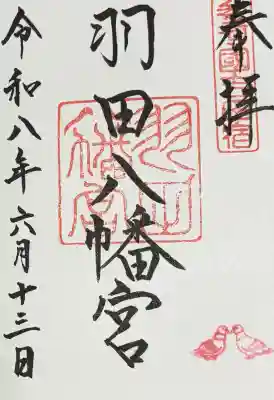 奉拝
羽田八幡宮
令和八年六月十三日